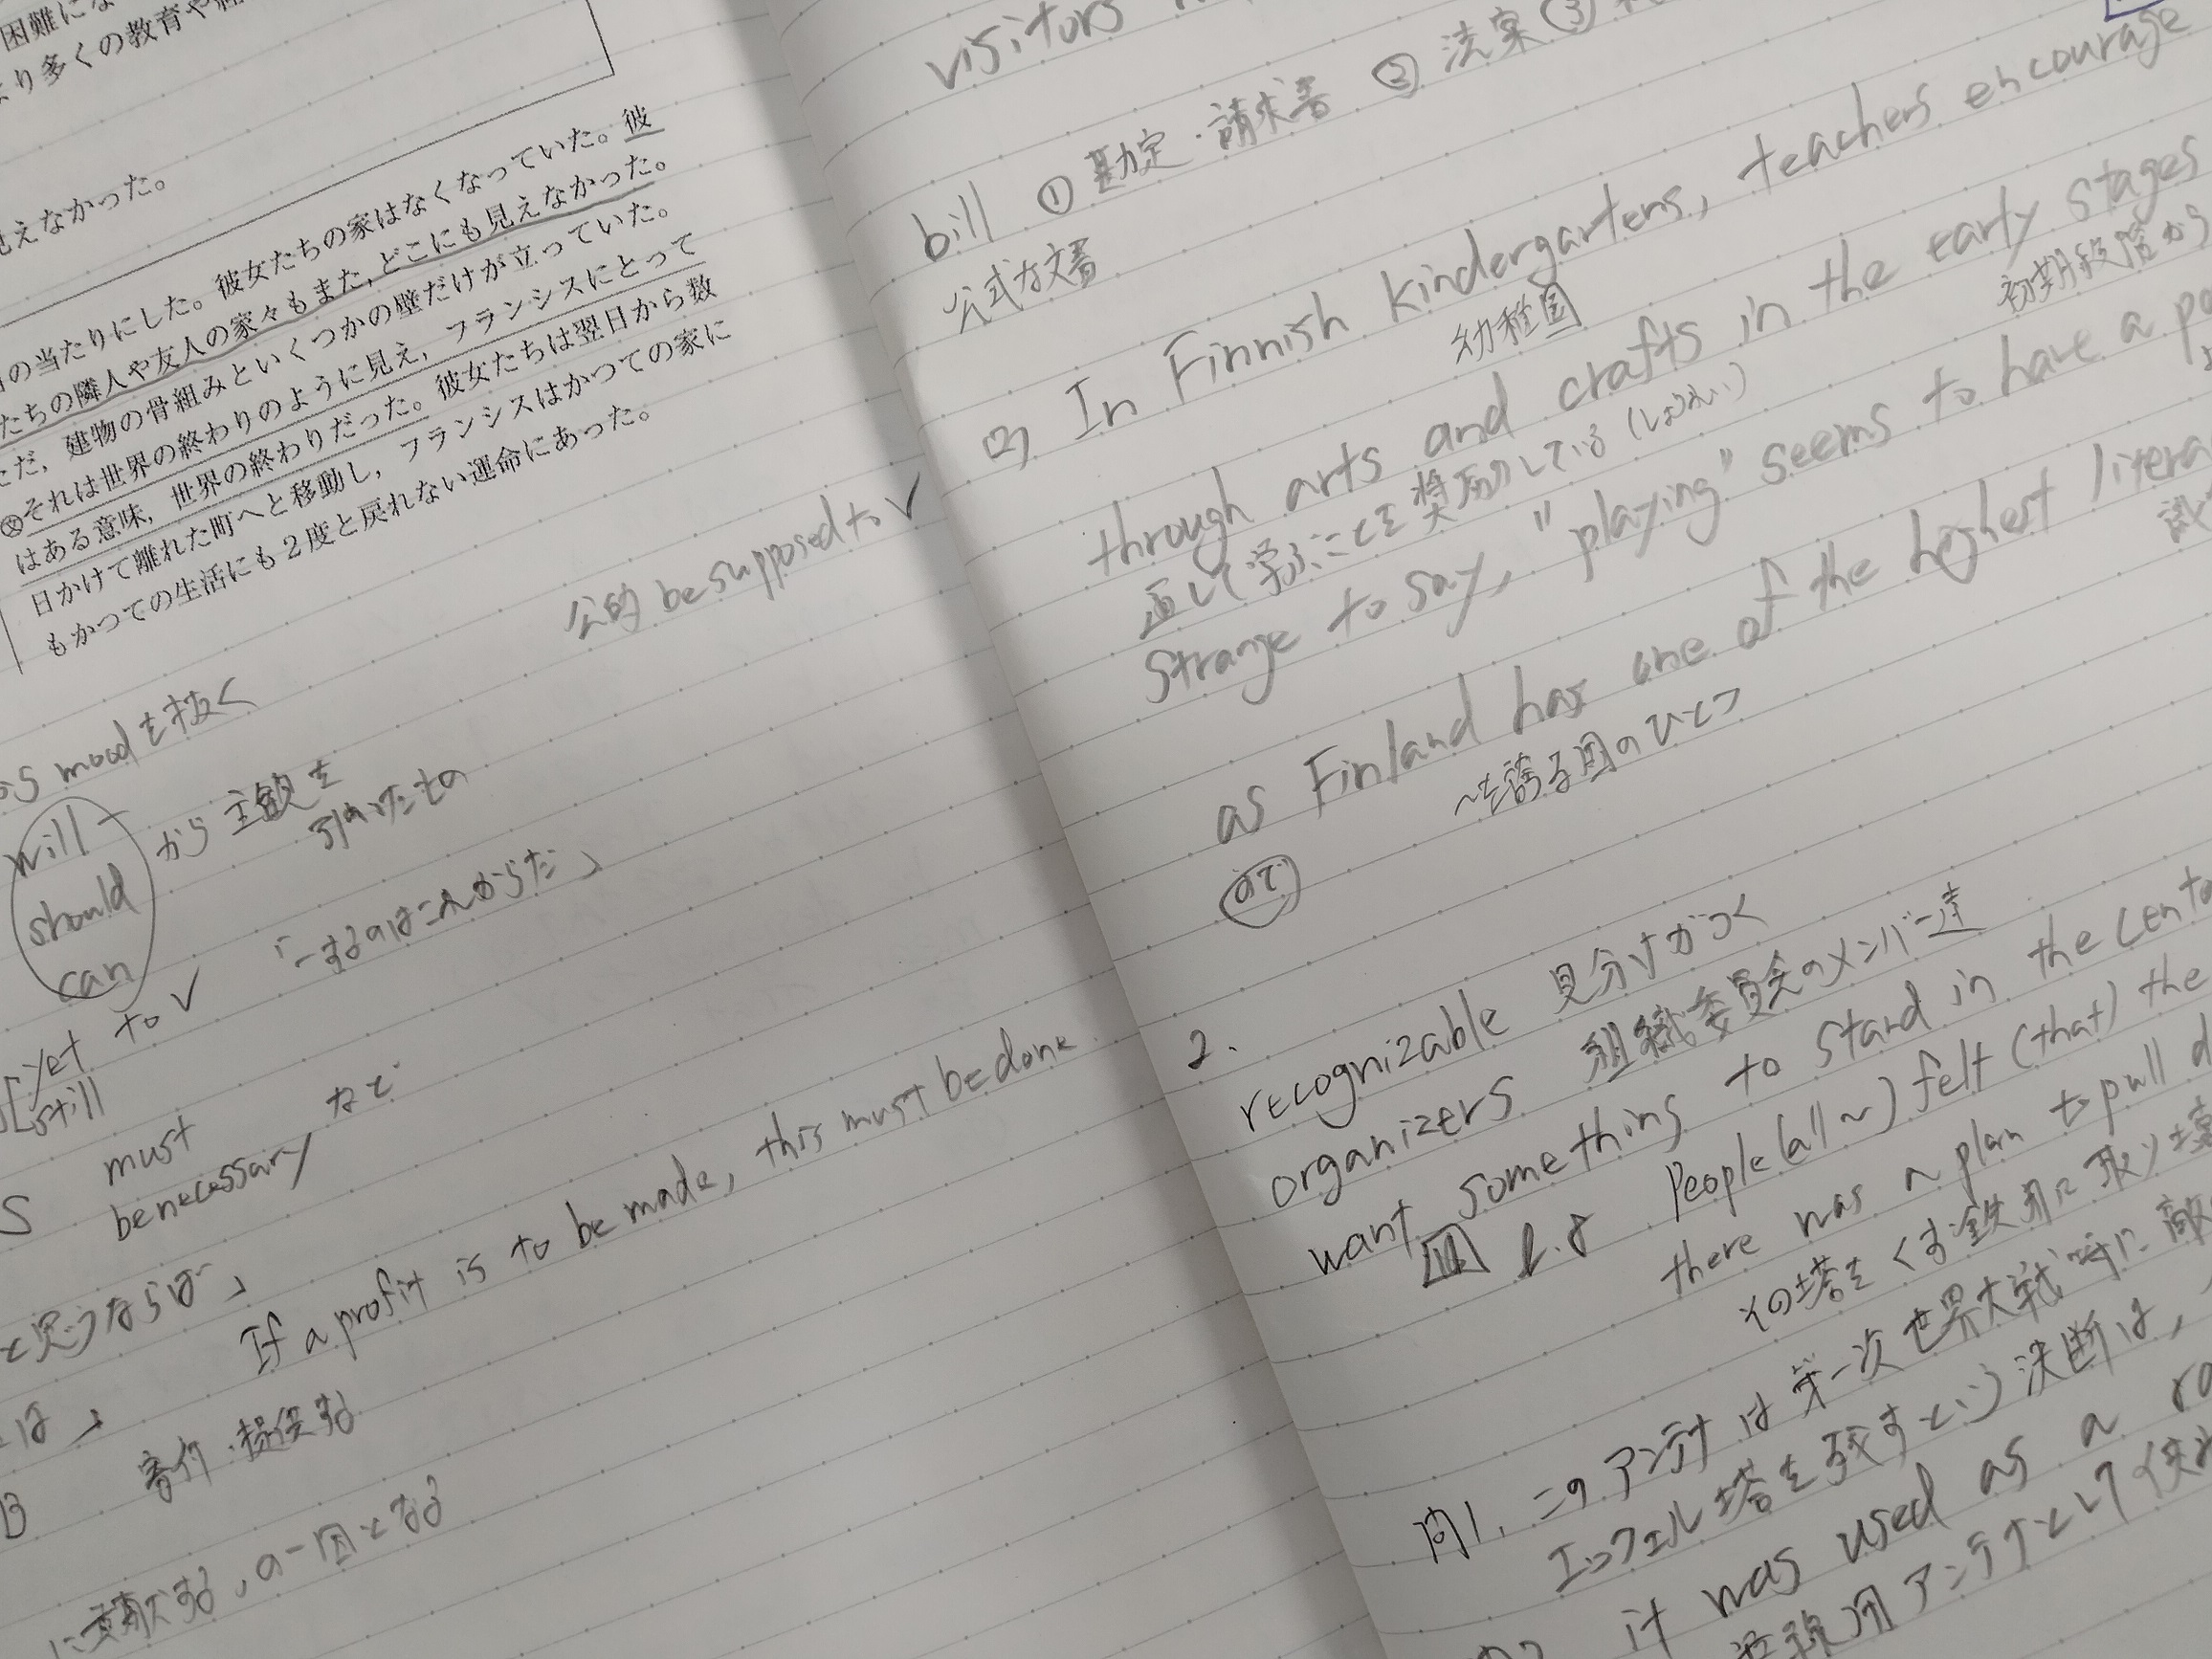 困難にな
より多くの教育や
見えなかった。
の当たりにした。彼女たちの家はなくなっていた。彼
たちの隣人や友人の家々もまた，どこにも見えなかった。
ただ，建物の骨組みといくつかの壁だけが立っていた。
それは世界の終わりのように見え，フランシスにとって
はある意味，世界の終わりだった。彼女たちは翌日から数
日かけて離れた町へと移動し，フランシスはかつての家に
もかつての生活にも2度と戻れない運命にあった。
公的 be supposed to V
から mood を抜く
will
should
can
から主観を
引いたもの
yet
still
to V
「〜するのはこれからだ」
S must
be necessary など
と思うならば」
If a profit is to be made, this must be done.
は」
B 寄付・提供する
に貢献する，の一因となる
visitors
bill ① 勘定・請求書 ② 法案 ③
公式な文書
In Finnish kindergartens, teachers encourage
幼稚園
through arts and crafts in the early stages
初期段階から
通して学ぶことを奨励している（しょうれい）
Strange to say, "playing" seems to have a
as Finland has one of the highest
〜を誇る国のひとつ
ので
2.
recognizable 見分けがつく
organizers 組織委員会のメンバー達
want something to stand in the
l.8 People (all ~) felt (that) the
there was a plan to pull
その塔をくず鉄用に取り
問1. このアンテナは第一次世界大戦時に
エッフェル塔を残すという決断は，
it was used as a
アンテナとして